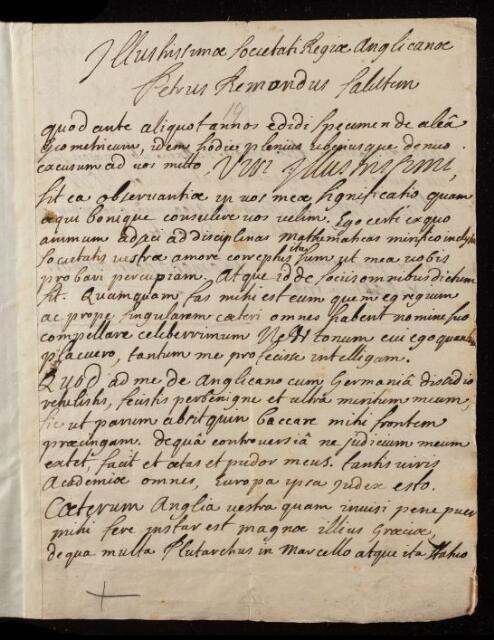 Illustrissimæ Societati Regiæ Anglicanæ
Petrus Remondus Salutem
19
quod ante aliquot annos edidi specimen de aleâ
geometricum, idem hodie plenius denuo
excusum ad vos mitto, Viri Illustrissimi,
sit ea observantiæ in vos meæ significatio quam
æqui bonique consulere vos velim. Ego certe ex quo
animum adjeci ad disciplinas mathematicas
ita
societatis vestræ amore correptus sum ut mea vobis
probari percupiam. Atque id de sociis omnibus dictum
sit. Quamquam fas mihi est eum quem egregium
ac prope singularem cæteri omnes habent nomine suo
compellare celeberrimum Newtonum cui ego
placuero, tantum me profecisse intelligam.
Quod ad me de Anglicano cum Germaniâ dissidio
retulistis, fecistis perbenigne et ultra meritum meum,
sic ut parum absit quin baccare mihi frontem
præcingam. de quâ controversiâ ne judicium meum
extet, facit et ætas et pudor meus. tantis viris
Academiæ omnes, Europa ipsa Judex esto.
Cæterum Anglia vestra quam invisi pene puer
mihi fere instar est magnæ illius Græciæ,
de qua multa Plutarchus in Marcello atque ita statuo